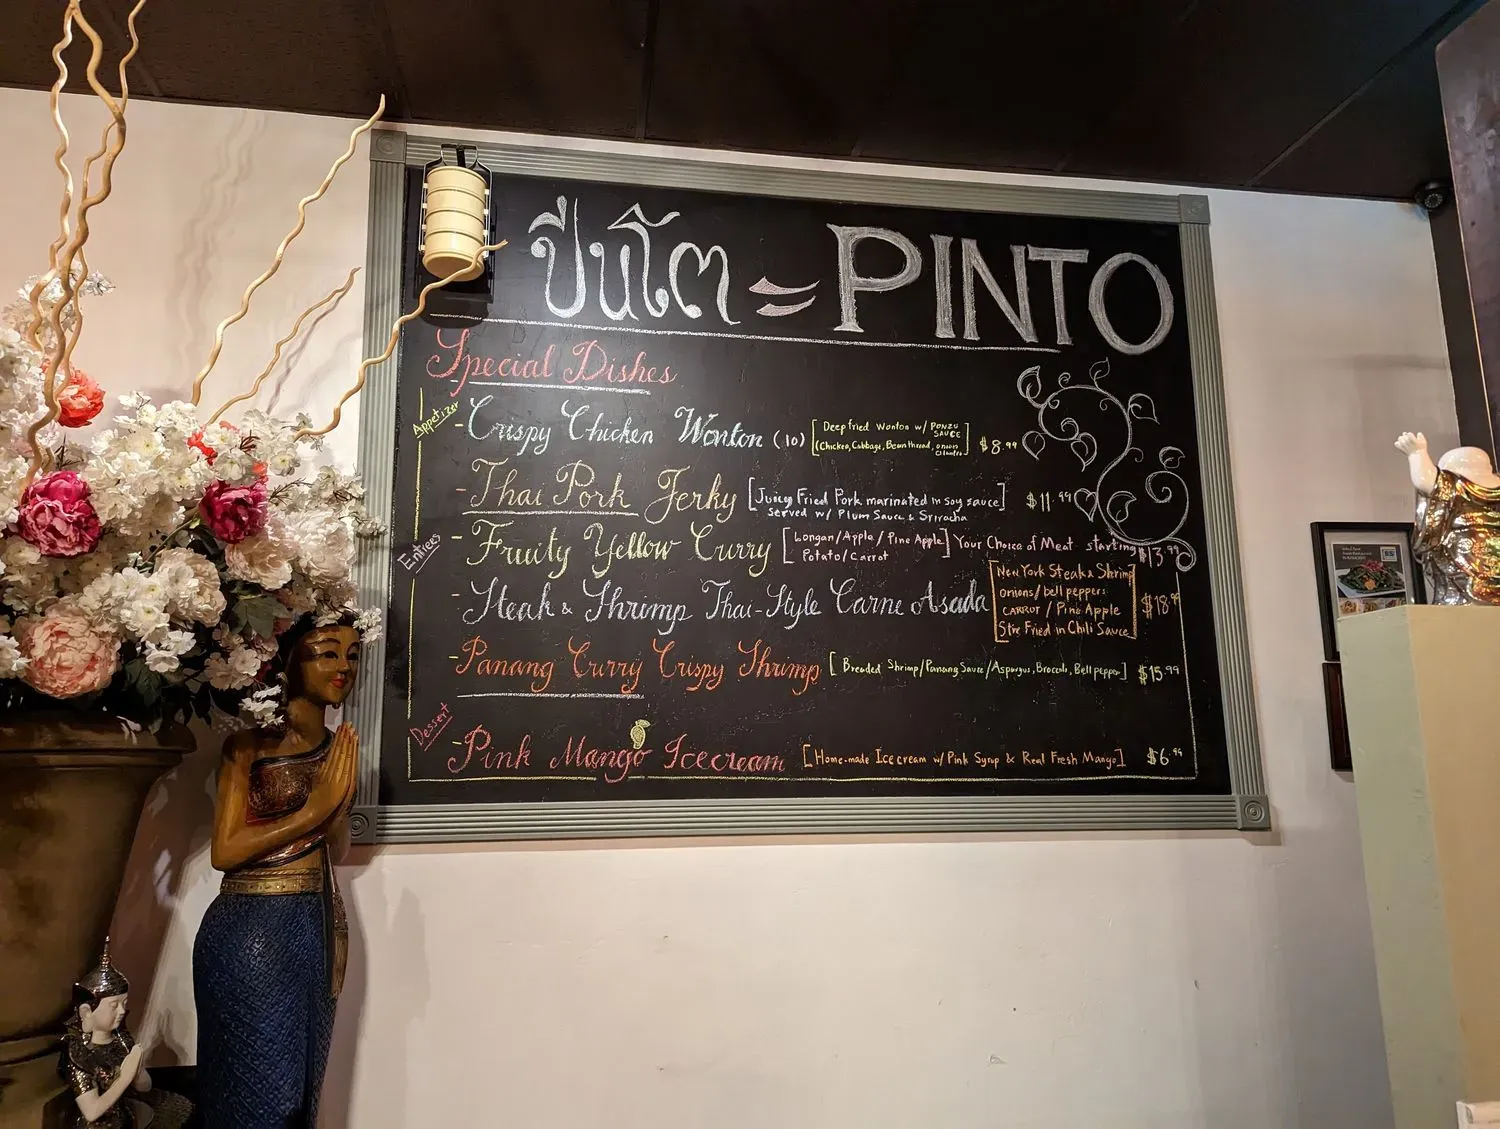 ปิ่นโต = PINTO
Special Dishes
Appetizer
- Crispy Chicken Wonton (10) [Deep fried Wonton w/ PONZU SAUCE
(Chicken, Cabbage, Bean thread, onion Cilantro] $8.99
- Thai Pork Jerky [Juicy Fried Pork marinated in soy sauce] $11.99
served w/ Plum Sauce & Sriracha
Entrees
- Fruity Yellow Curry [Longan/Apple/Pine Apple] Your Choice of Meat starting $13.99
Potato/Carrot
- Steak & Shrimp Thai-Style Carne Asada [New York Steak & Shrimp
onions/bell peppers
CARROT / Pine Apple $18.99
Stir Fried in Chili Sauce]
- Panang Curry Crispy Shrimp [Breaded Shrimp/Panang Sauce/Aspargus, Broccoli, Bell pepper] $15.99
Dessert
- Pink Mango Icecream [Home-made Ice cream w/ Pink Syrup & Real Fresh Mango] $6.99